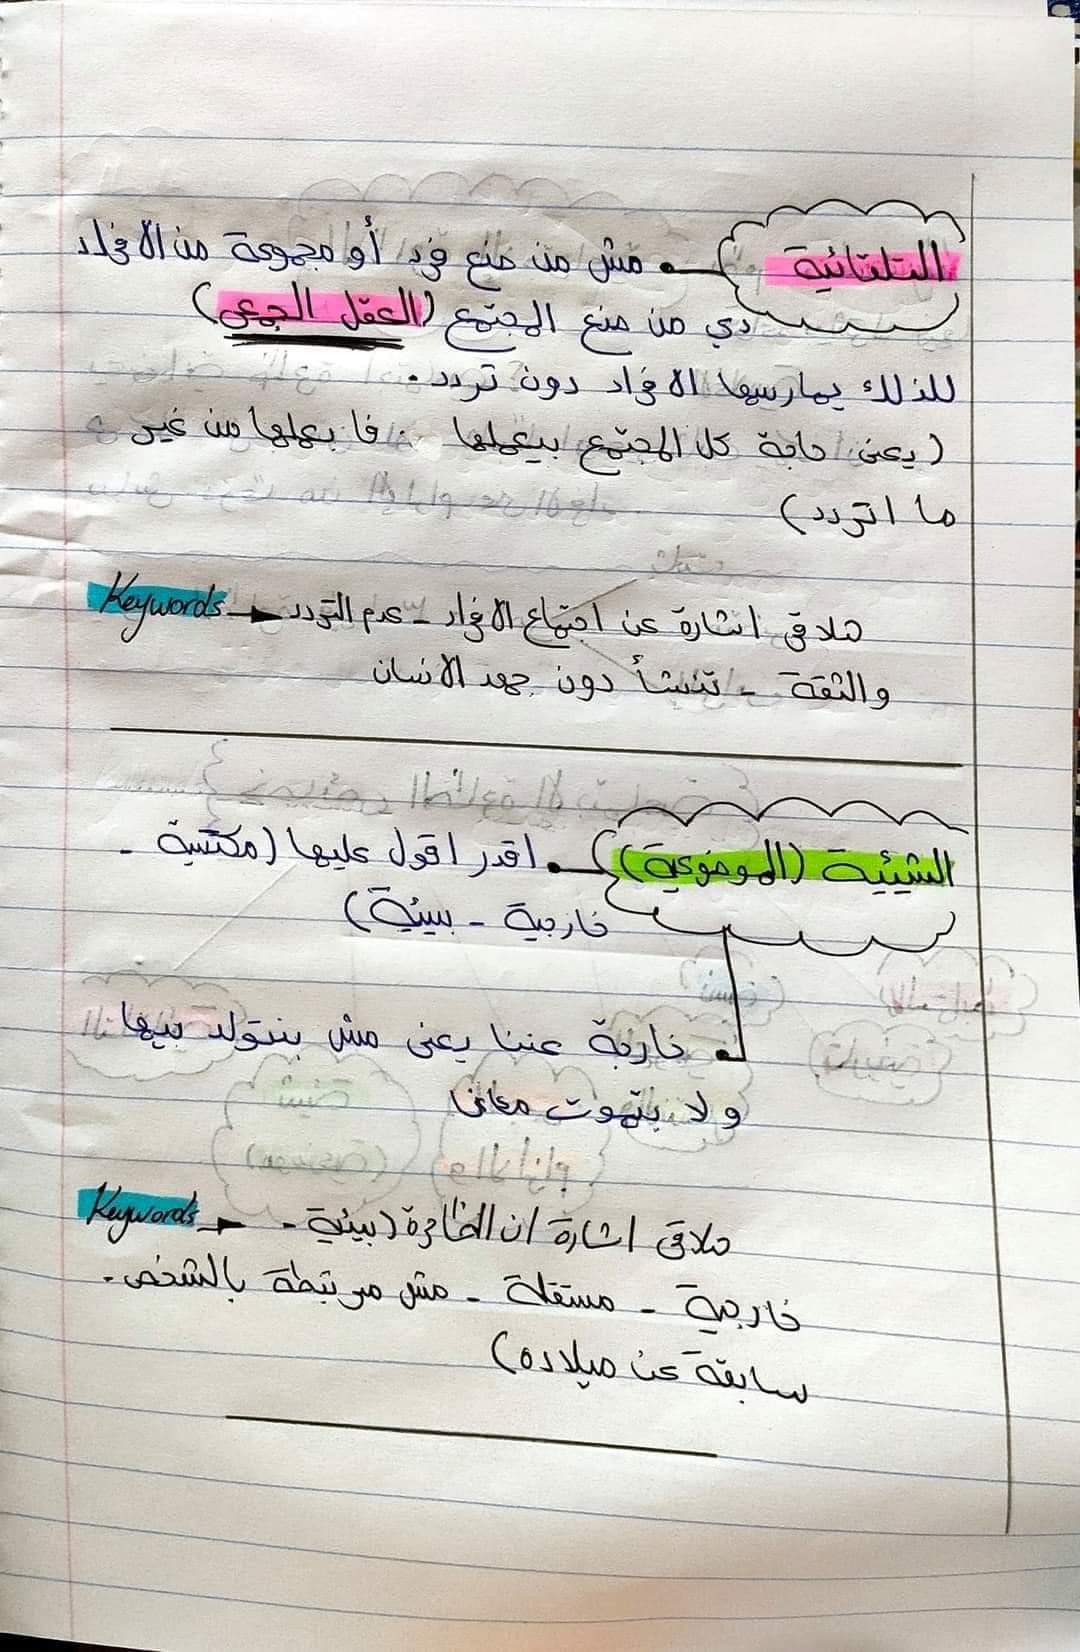 التلقائية • مش من صنع فرد أو مجموعة من الافراد
دي من صنع المجتمع (العقل الجمعي)
للذلك يمارسها الافراد دون تردد.
(يعنى حاجة كل المجتمع بيعملها . فا بعملها من غير
ما اتردد)
Keywords → هلاقى اشارة عن اجتماع الافراد - عدم التردد
والثقة - تنشأ دون جهد الانسان
الشيئية (الموضوعية) • اقدر اقول عليها (مكتسبة -
خارجية - بيئية)
• خارجة عننا يعنى مش بنتولد بيها
ولا بتموت معانا
Keywords → هلاقى اشارة ان الظاهرة (بيئية -
خارجية - مستقلة - مش مرتبطة بالشخص -
سابقة عن ميلاده)